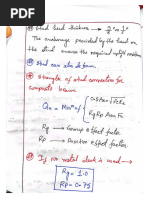 Stud head thickness → 3/8" or 1/2"
The anchorage provided by the head on
the stud ensures the required uplift resistance
Stud can also deform.
Strength of stud connectors for
composite beam
Qn = Min of
0.5 Asa √f'c Ec
Rg Rp Asa Fu
Rg → Group effect factor
Rp → Position effect factor
If no metal deck is used →
Rg = 1.0
RP = 0.75